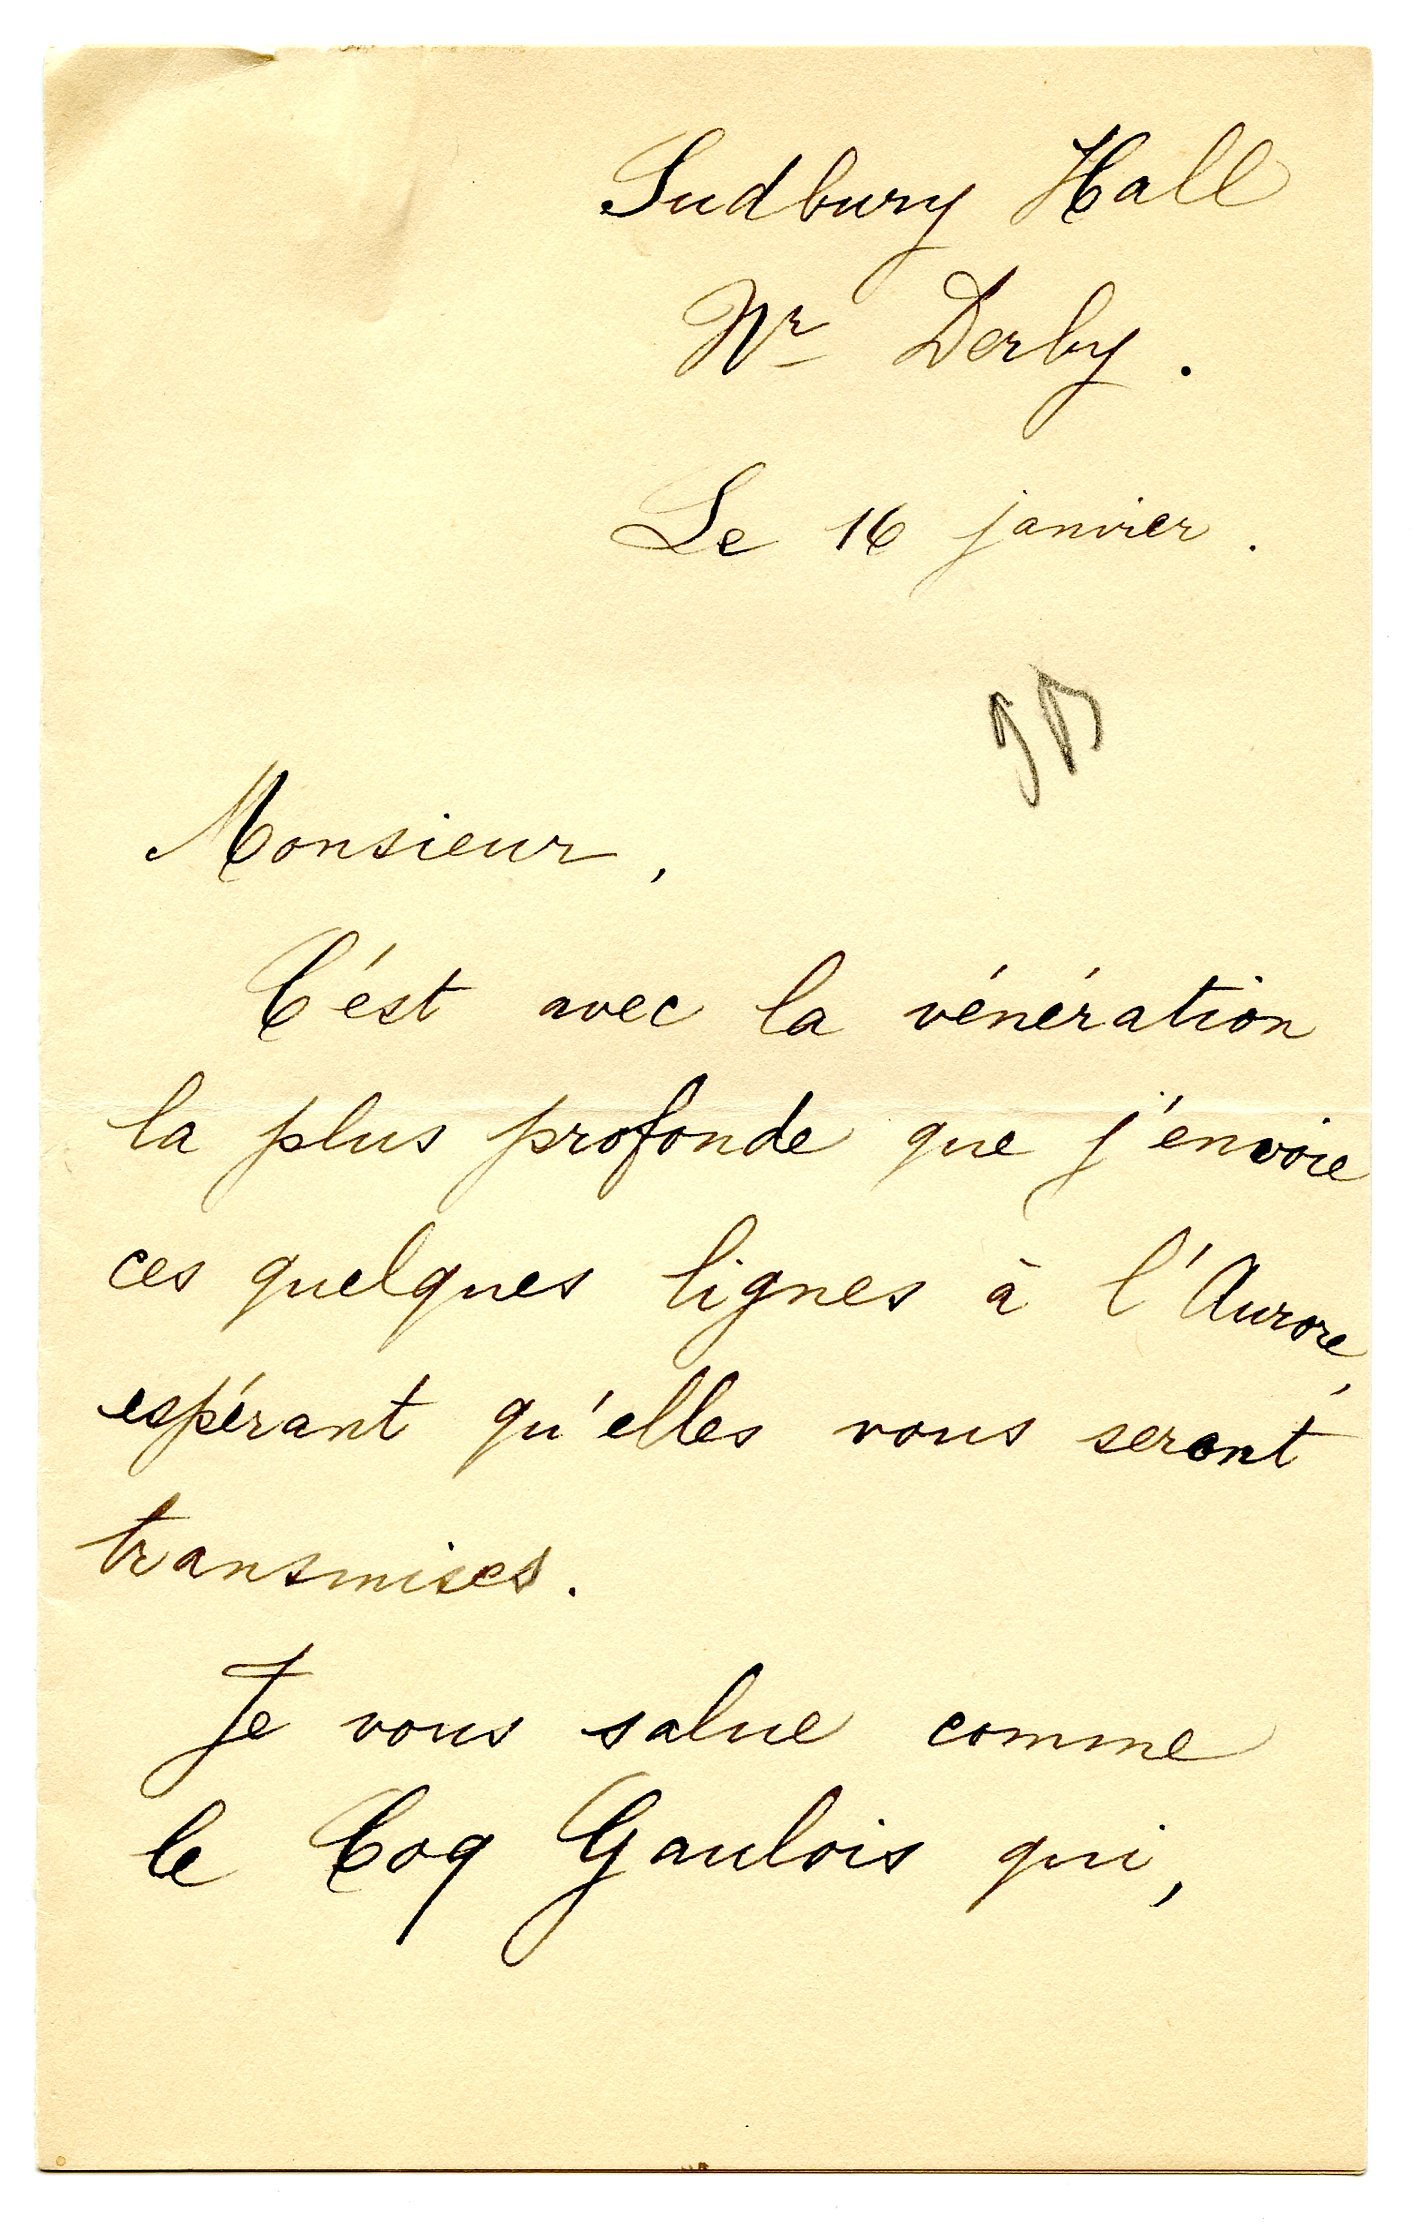 Sudbury Hall
Nr Derby.
Le 16 janvier.
Monsieur,
C'est avec la vénération
la plus profonde que j'envoie
ces quelques lignes à l'Aurore,
espérant qu'elles vous seront
transmises.
Je vous salue comme
le Coq Gaulois qui,